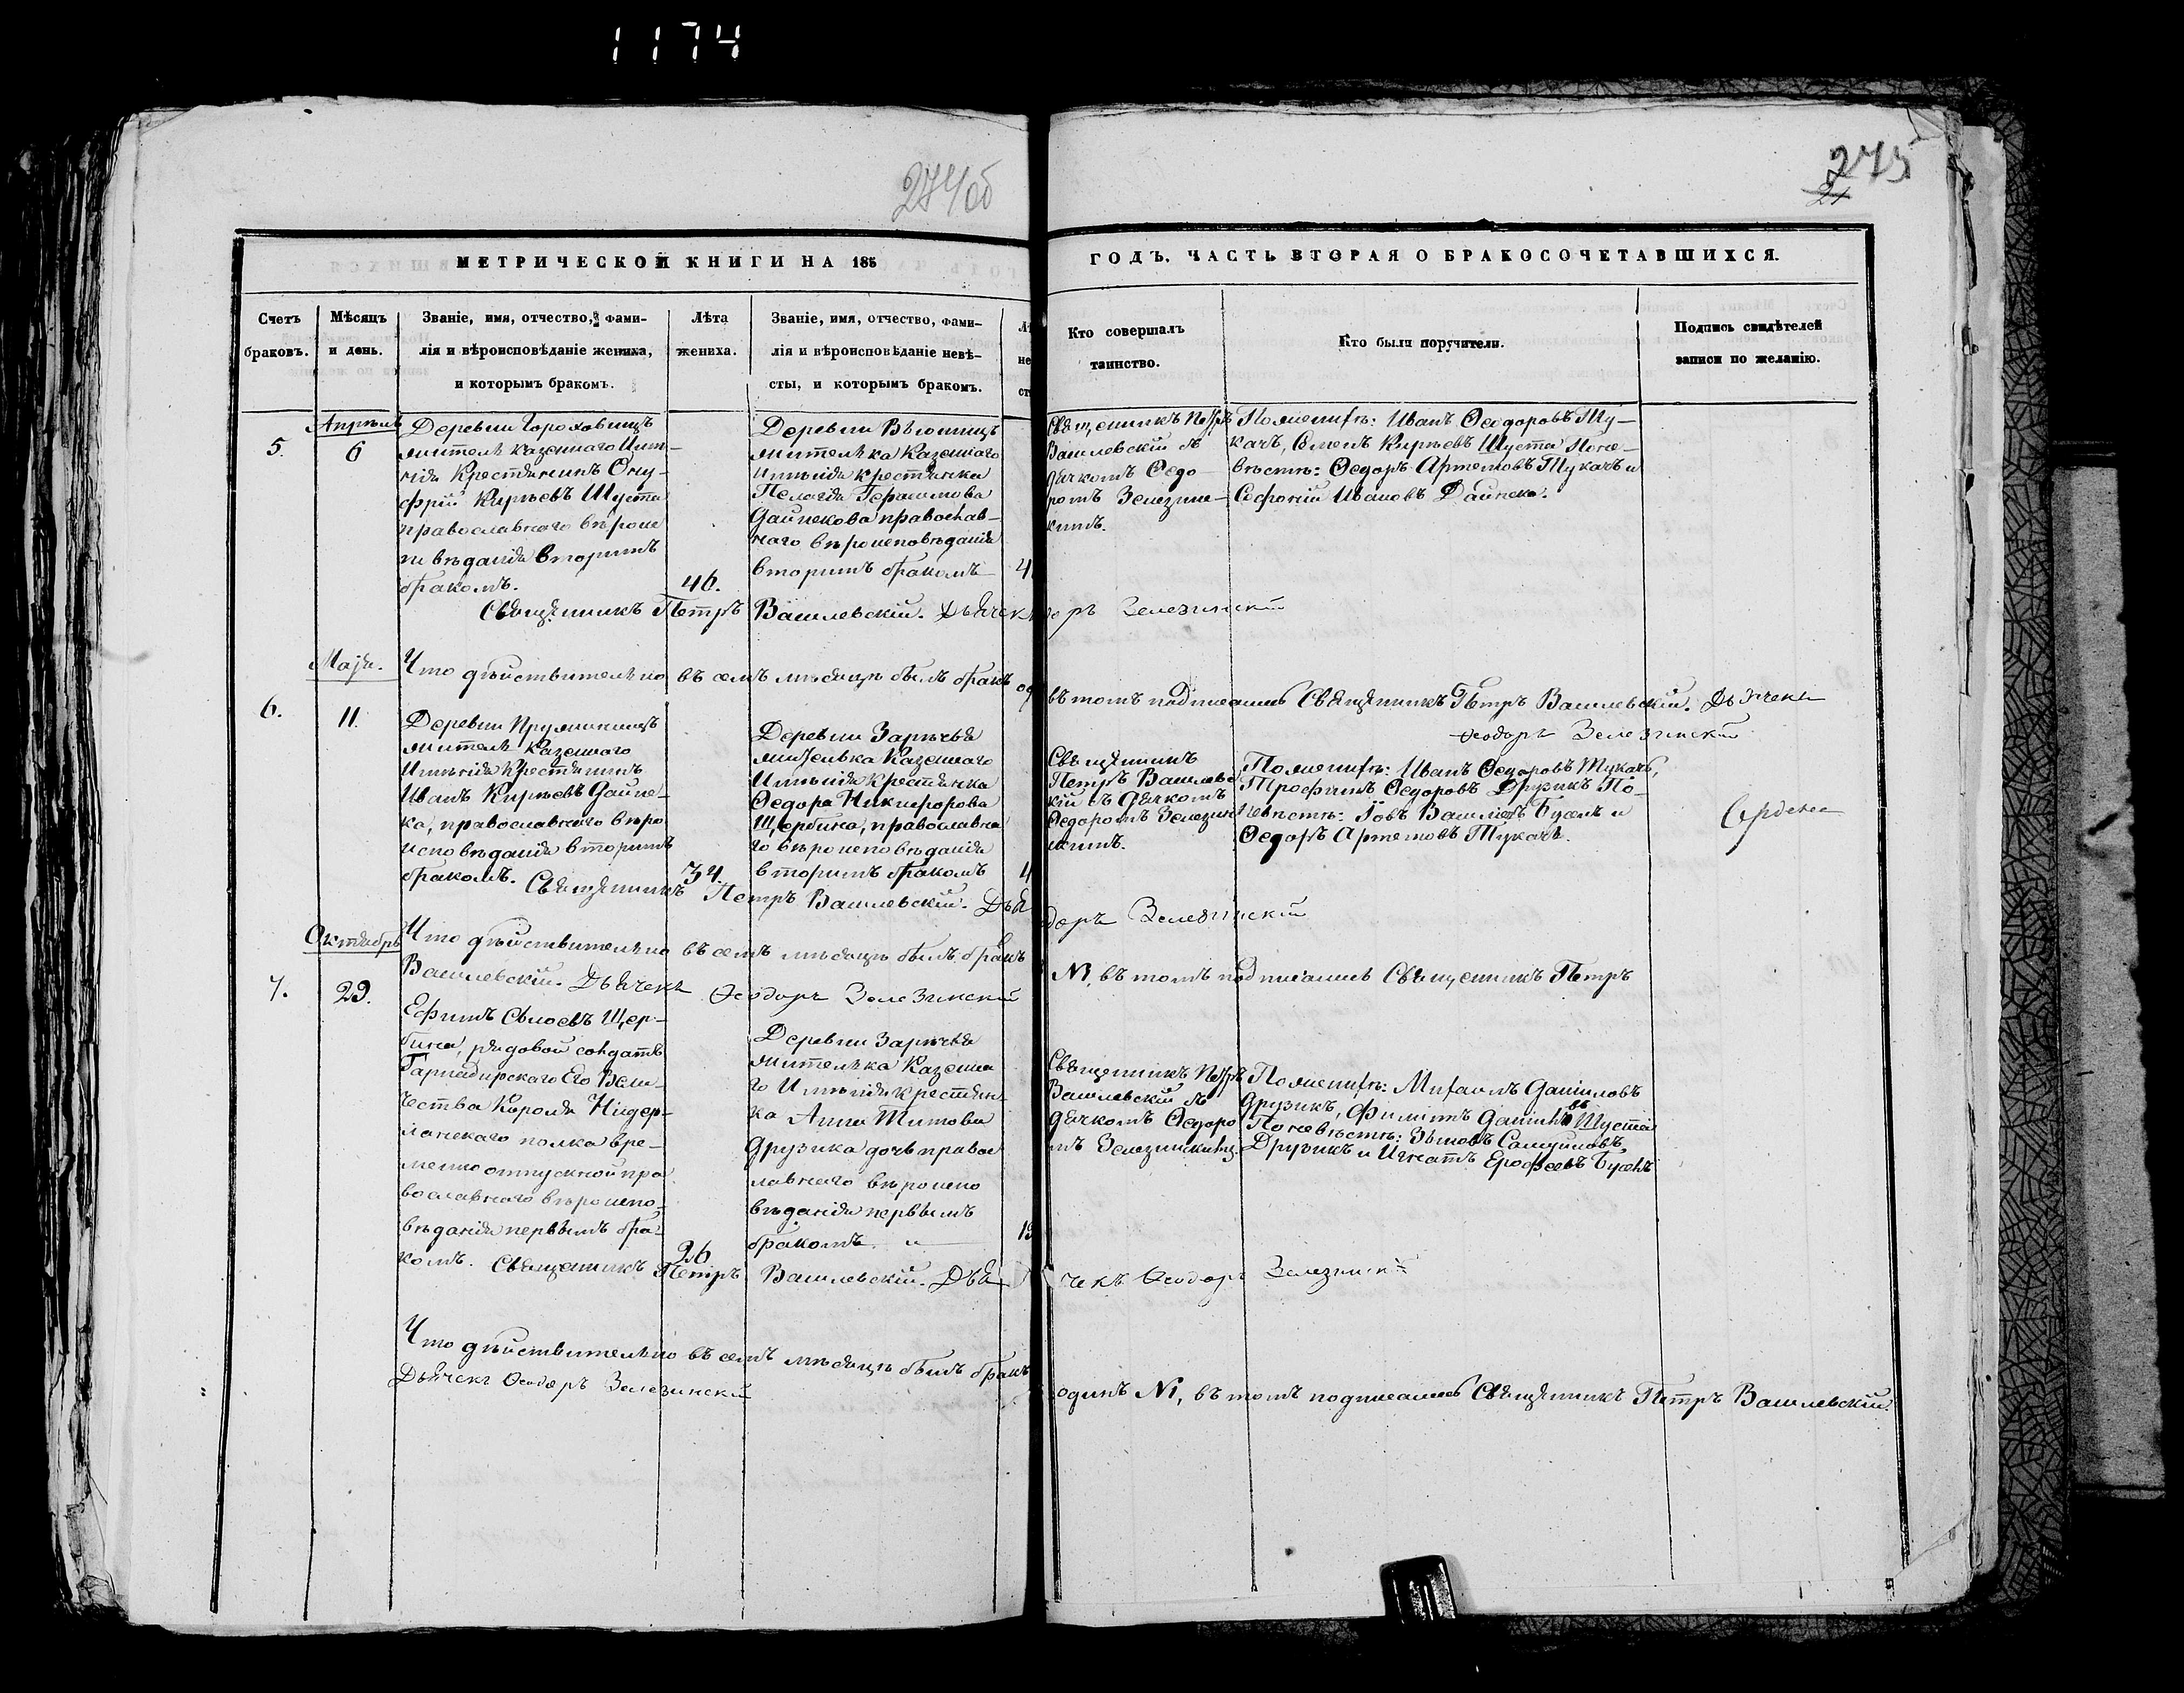 1174
274об
275
МЕТРИЧЕСКОЙ КНИГИ НА 185
ГОДЪ. ЧАСТЬ ВТОРАЯ О БРАКОСОЧЕТАВШИХСЯ.
Счетъ
браковъ.
Мѣсяцъ
и день.
Званіе, имя, отчество, фами-
лія и вѣроисповѣданіе жениха,
и которымъ бракомъ.
Лѣта
жениха.
Званіе, имя, отчество, фами-
лія и вѣроисповѣданіе невѣ-
сты, и которымъ бракомъ.
Кто совершалъ
таинство.
Кто были поручители.
Подпись свидѣтелей
записи по желанію.
Апрѣль
5.
6
Деревни Гороховищъ
житель казеннаго Имѣ-
нія Крестянинъ Ону-
фрій Кирѣевъ Шуста
православнаго вѣроис
повѣданія вторимъ
бракомъ.
46.
Деревни
жителька Казеннаго
Имѣнія крестянка
Пелагія Герасимова
Дайнекова православ-
наго вѣроисповѣданія
вторимъ бракомъ
Священникъ Петръ
Василевскій съ
дячкомъ Ѳедо-
ромъ Зелезин-
кимъ.
Поженихѣ: Иванъ Ѳеодоровъ Ту-
качъ, Семенъ Кирѣевъ Шуста Поне-
вѣстѣ: Ѳедоръ Артемовъ Тукачъ и
Софроній Ивановъ Дайнека.
Священникъ Петръ Василевскій. Дьячек доръ Зелезинскій
Маія.
Что дѣйствительно въ семъ мѣсяцѣ былъ бракъ въ томъ подписались Священникъ Петръ Василевскій. Дьячекъ
Ѳеодоръ Зелезинскій
6.
11.
Деревни
житель Казеннаго
Имѣнія Крестянинъ
Иванъ Кирѣевъ Дайне-
ка, православнаго вѣро
исповѣданія вторимъ
бракомъ.
34.
Деревни Зарѣчья
жителька Казеннаго
Имѣнія Крестянка
Ѳедора Никифорова
Щербина, православна
го вѣроисповѣданія
вторимъ бракомъ
Священникъ
Петръ Василевс
кій съ Дячкомъ
Ѳедоромъ Зелезин
скимъ.
Поженихѣ: Иванъ Ѳедоровъ Тукачъ,
Трофимъ Ѳедоровъ Друзикъ По-
невѣстѣ: Іовъ Василіевъ Бусель и
Ѳедоръ Артемовъ Тукачъ.
Священникъ Петръ Василевскій. Дья доръ Зелезинскій
Октябрь
Что дѣйствительно въ семъ мѣсяцѣ былъ бракъ №1, въ томъ подписались Священникъ Петръ
Василевскій. Дьячекъ Ѳеодоръ Зелезинскій
7.
29.
Ефимъ Щер-
бина, рядовой солдатъ
Гарнадирскаго Его Вели-
чества Короля Нидер-
ланскаго полка вре-
менноотпускной пра
вославнаго вѣроиспо-
вѣданія первымъ бра-
комъ.
26
Деревни Зарѣчья
жителька Казенна
го Имѣнія крестян-
ка Анна Титова
Друзика дочь правос
лавнаго вѣроиспо
вѣданія первымъ
бракомъ
Священникъ Петръ
Василевскій съ
дячкомъ Ѳедоро
мъ Зелезинскимъ.
Поженихѣ: Михаилъ Даніиловъ
Друзикъ, Филипъ Даніиловъ Шуста
Поневѣстѣ: Самуиловъ
Друзикъ и Игнатъ Ерофѣевъ Бусель
Священникъ Петръ Василевскій. Дья чекъ Ѳеодоръ Зелезинскій
Что дѣйствительно въ семъ мѣсяцѣ былъ бракъ одинъ №1, въ томъ подписались Священникъ Петръ Василевскій.
Дьячекъ Ѳеодоръ Зелезинскій